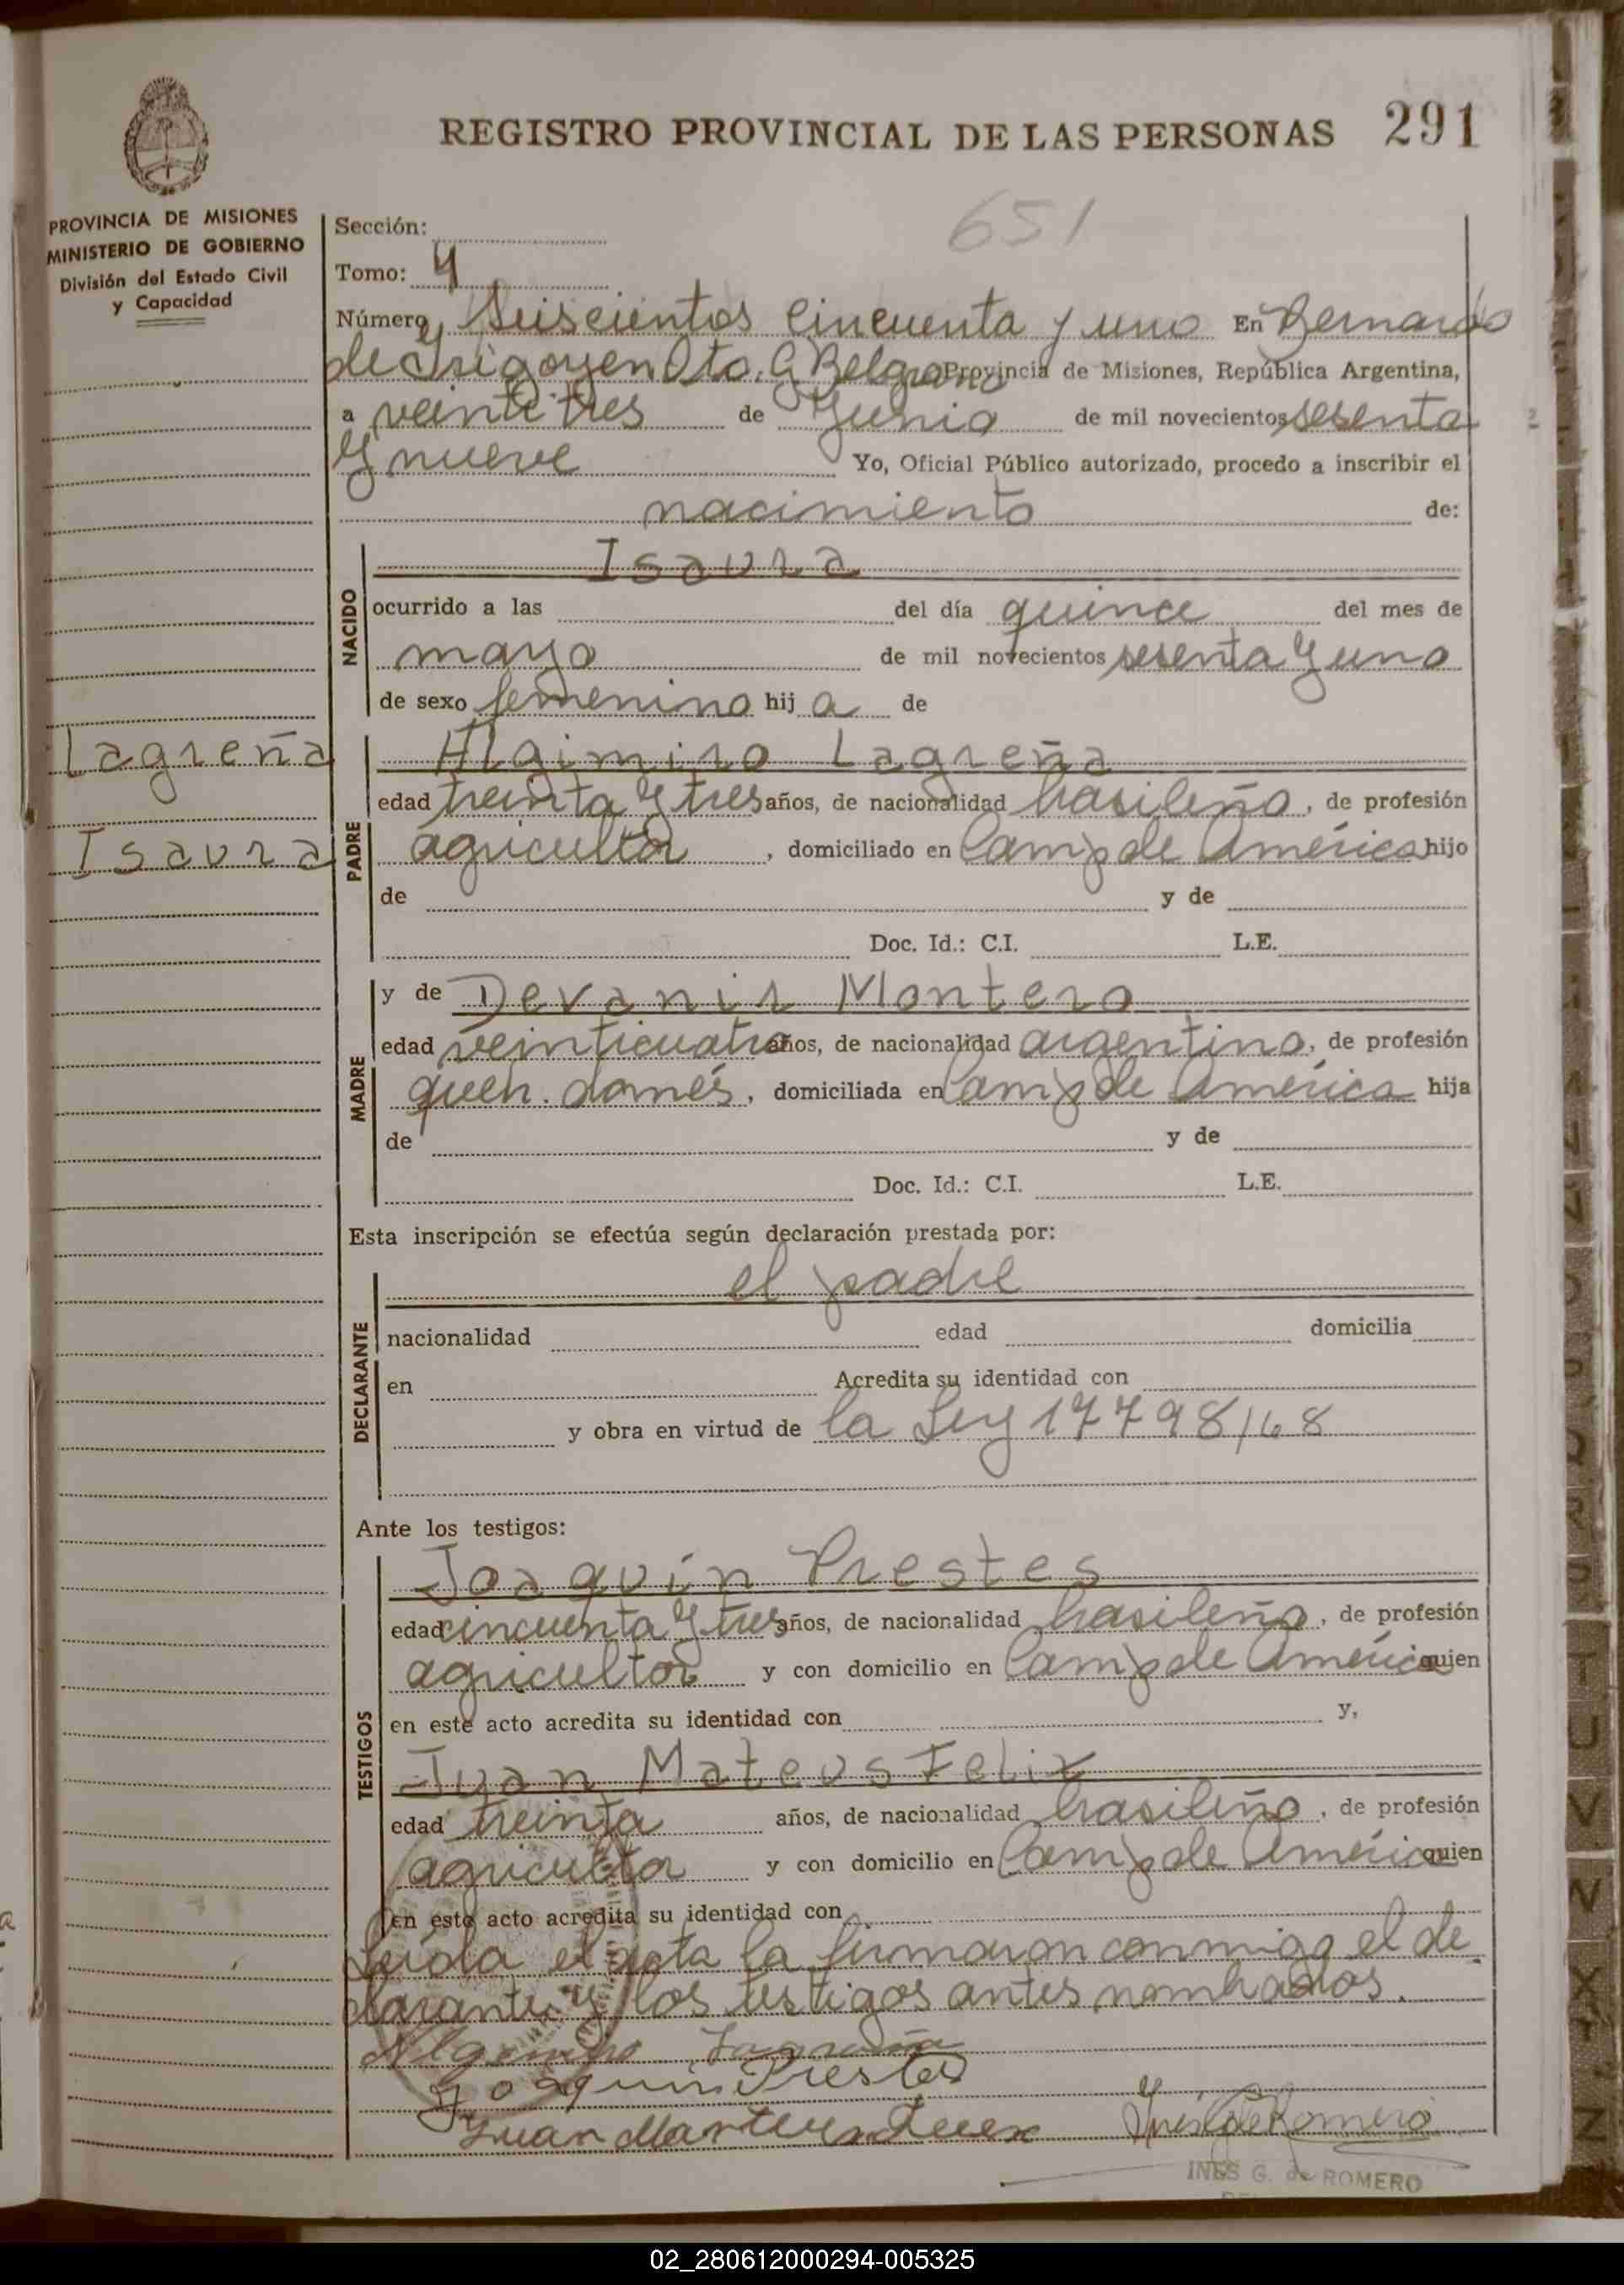 REGISTRO PROVINCIAL DE LAS PERSONAS 291
PROVINCIA DE MISIONES
MINISTERIO DE GOBIERNO
División del Estado Civil
y Capacidad
651
Sección:
Tomo: 4
Número Seiscientos cincuenta y uno En Bernardo
de Irigoyen Dto. G. Belgrano Provincia de Misiones, República Argentina,
a veinte tres de Junio de mil novecientos sesenta
y nueve Yo, Oficial Público autorizado, procedo a inscribir el
nacimiento de:
NACIDO
Isaura
ocurrido a las del día quince del mes de
mayo de mil novecientos sesenta y uno
de sexo femenino hij a de
Lagreña
Isaura
PADRE
Algimiro Lagreña
edad treinta y tres años, de nacionalidad brasileño, de profesión
agricultor, domiciliado en Camp de América hijo
de y de
Doc. Id.: C.I. L.E.
MADRE
y de Devanir Montero
edad veinticuatro años, de nacionalidad argentino, de profesión
queh. domés, domiciliada en Camp de América hija
de y de
Doc. Id.: C.I. L.E.
Esta inscripción se efectúa según declaración prestada por:
DECLARANTE
el padre
nacionalidad edad domicilia
en Acredita su identidad con
y obra en virtud de la Ley 17798/68
Ante los testigos:
TESTIGOS
Joaquín Prestes
edad cincuenta y tres años, de nacionalidad brasileño, de profesión
agricultor y con domicilio en Camp de América quien
en este acto acredita su identidad con y,
Juan Mateus Felix
edad treinta años, de nacionalidad brasileño, de profesión
agricultor y con domicilio en Camp de América quien
en este acto acredita su identidad con
Leída el acta la firmaron conmigo el de
clarante y los testigos antes nombrados.
Algimiro Lagreña
Joaquin Prestes
Juan
Inés G de Romero
INES G. de ROMERO
02_280612000294-005325